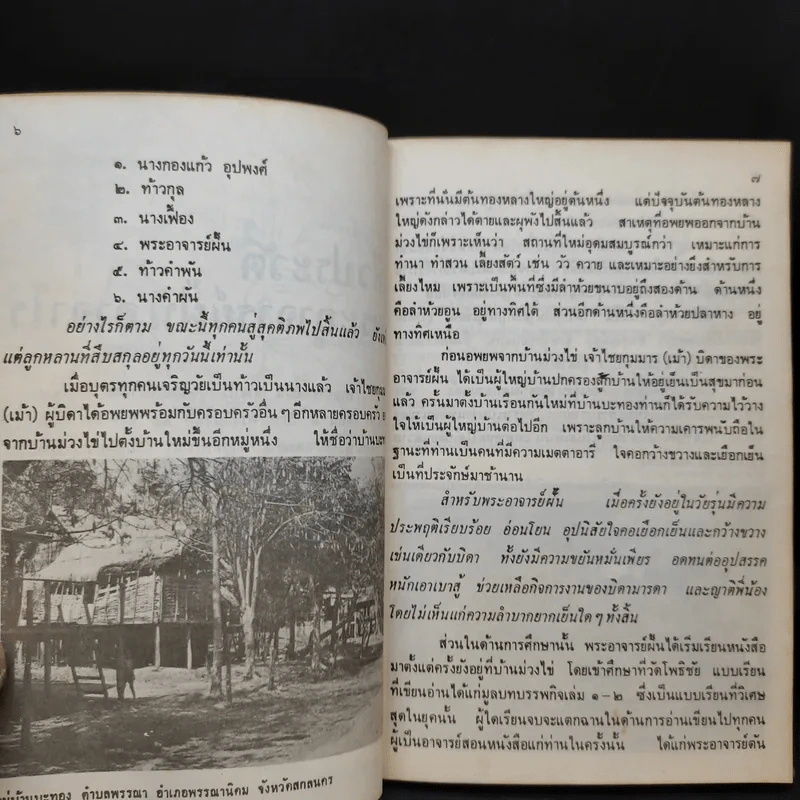 ๖
๑. นางกองแก้ว อุปพงศ์
๒. ท้าวกุล
๓. นางเฟื้อง
๔. พระอาจารย์ฝั้น
๕. ท้าวคำพัน
๖. นางคำผัน
อย่างไรก็ตาม ขณะนี้ทุกคนสู่สุคติภพไปสิ้นแล้ว
แต่ลูกหลานที่สืบสกุลอยู่ทุกวันนี้เท่านั้น
เมื่อบุตรทุกคนเจริญวัยเป็นท้าวเป็นนางแล้ว เจ้าไชยกุมมาร
(เม้า) ผู้บิดาได้อพยพพร้อมกับครอบครัวอื่น ๆ อีกหลายครอบครัว
จากบ้านม่วงไข่ไปตั้งบ้านใหม่ขึ้นอีกหมู่หนึ่ง ให้ชื่อว่าบ้านบะทอง
หมู่บ้านบะทอง ตำบลพรรณา อำเภอพรรณานิคม จังหวัดสกลนคร
๗
เพราะที่นั่นมีต้นทองหลางใหญ่อยู่ต้นหนึ่ง แต่ปัจจุบันต้นทองหลาง
ใหญ่ดังกล่าวได้ตายและผุพังไปสิ้นแล้ว สาเหตุที่อพยพออกจากบ้าน
ม่วงไข่ก็เพราะเห็นว่า สถานที่ใหม่อุดมสมบูรณ์กว่า เหมาะแก่การ
ทำนา ทำสวน เลี้ยงสัตว์ เช่น วัว ควาย และเหมาะอย่างยิ่งสำหรับการ
เลี้ยงไหม เพราะเป็นพื้นที่ซึ่งมีลำห้วยขนาบอยู่ถึงสองด้าน ด้านหนึ่ง
คือลำห้วยอูน อยู่ทางทิศใต้ ส่วนอีกด้านหนึ่งคือลำห้วยปลาหาง อยู่
ทางทิศเหนือ
ก่อนอพยพจากบ้านม่วงไข่ เจ้าไชยกุมมาร (เม้า) บิดาของพระ
อาจารย์ฝั้น ได้เป็นผู้ใหญ่บ้านปกครองลูกบ้านให้อยู่เย็นเป็นสุขมาก่อน
แล้ว ครั้นมาตั้งบ้านเรือนกันใหม่ที่บ้านบะทองท่านก็ได้รับความไว้วาง
ใจให้เป็นผู้ใหญ่บ้านต่อไปอีก เพราะลูกบ้านให้ความเคารพนับถือใน
ฐานะที่ท่านเป็นคนที่มีความเมตตาอารี ใจคอกว้างขวางและเยือกเย็น
เป็นที่ประจักษ์มาช้านาน
สำหรับพระอาจารย์ฝั้น เมื่อครั้งยังอยู่ในวัยรุ่นมีความ
ประพฤติเรียบร้อย อ่อนโยน อุปนิสัยใจคอเยือกเย็นและกว้างขวาง
เช่นเดียวกับบิดา ทั้งยังมีความขยันหมั่นเพียร อดทนต่ออุปสรรค
หนักเอาเบาสู้ ช่วยเหลือกิจการงานของบิดามารดา และญาติพี่น้อง
โดยไม่เห็นแก่ความลำบากยากเย็นใด ๆ ทั้งสิ้น
ส่วนในด้านการศึกษานั้น พระอาจารย์ฝั้นได้เริ่มเรียนหนังสือ
มาตั้งแต่ครั้งยังอยู่ที่บ้านม่วงไข่ โดยเข้าศึกษาที่วัดโพธิชัย แบบเรียน
ที่เขียนอ่านได้แก่มูลบทบรรพกิจเล่ม ๑-๒ ซึ่งเป็นแบบเรียนที่วิเศษ
สุดในยุคนั้น ผู้ใดเรียนจบจะแตกฉานในด้านการอ่านเขียนไปทุกคน
ผู้เป็นอาจารย์สอนหนังสือแก่ท่านในครั้งนั้น ได้แก่พระอาจารย์ตัน